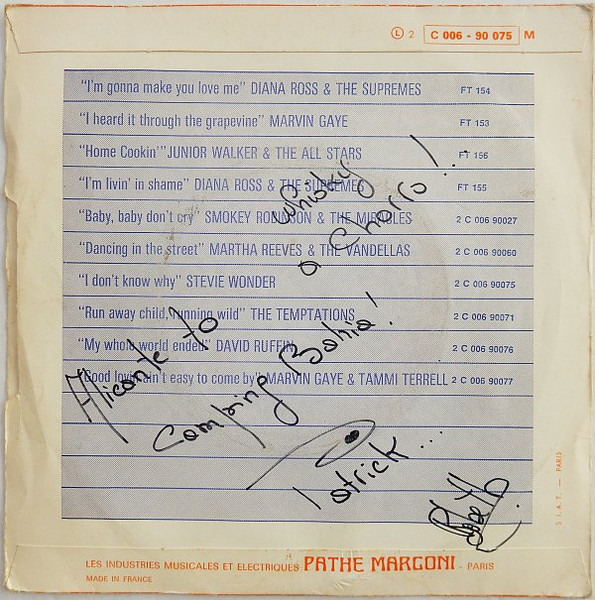 Ⓛ 2 C 006 - 90 075 M
"I'm gonna make you love me" DIANA ROSS & THE SUPREMES FT 154
"I heard it through the grapevine" MARVIN GAYE FT 153
"Home Cookin'" JUNIOR WALKER & THE ALL STARS FT 156
"I'm livin' in shame" DIANA ROSS & THE SUPREMES FT 155
"Baby, baby don't cry" SMOKEY ROBINSON & THE MIRACLES 2 C 006 90027
"Dancing in the street" MARTHA REEVES & THE VANDELLAS 2 C 006 90060
"I don't know why" STEVIE WONDER 2 C 006 90075
"Run away child, running wild" THE TEMPTATIONS 2 C 006 90071
"My whole world ended" DAVID RUFFIN 2 C 006 90076
"Good lovin' ain't easy to come by" MARVIN GAYE & TAMMI TERRELL 2 C 006 90077
Whisky
a Chorro!..
Alicante to
Camping Bahia!
Patrick...
S.I.A.T. — PARIS
LES INDUSTRIES MUSICALES ET ELECTRIQUES PATHE MARCONI - PARIS
MADE IN FRANCE